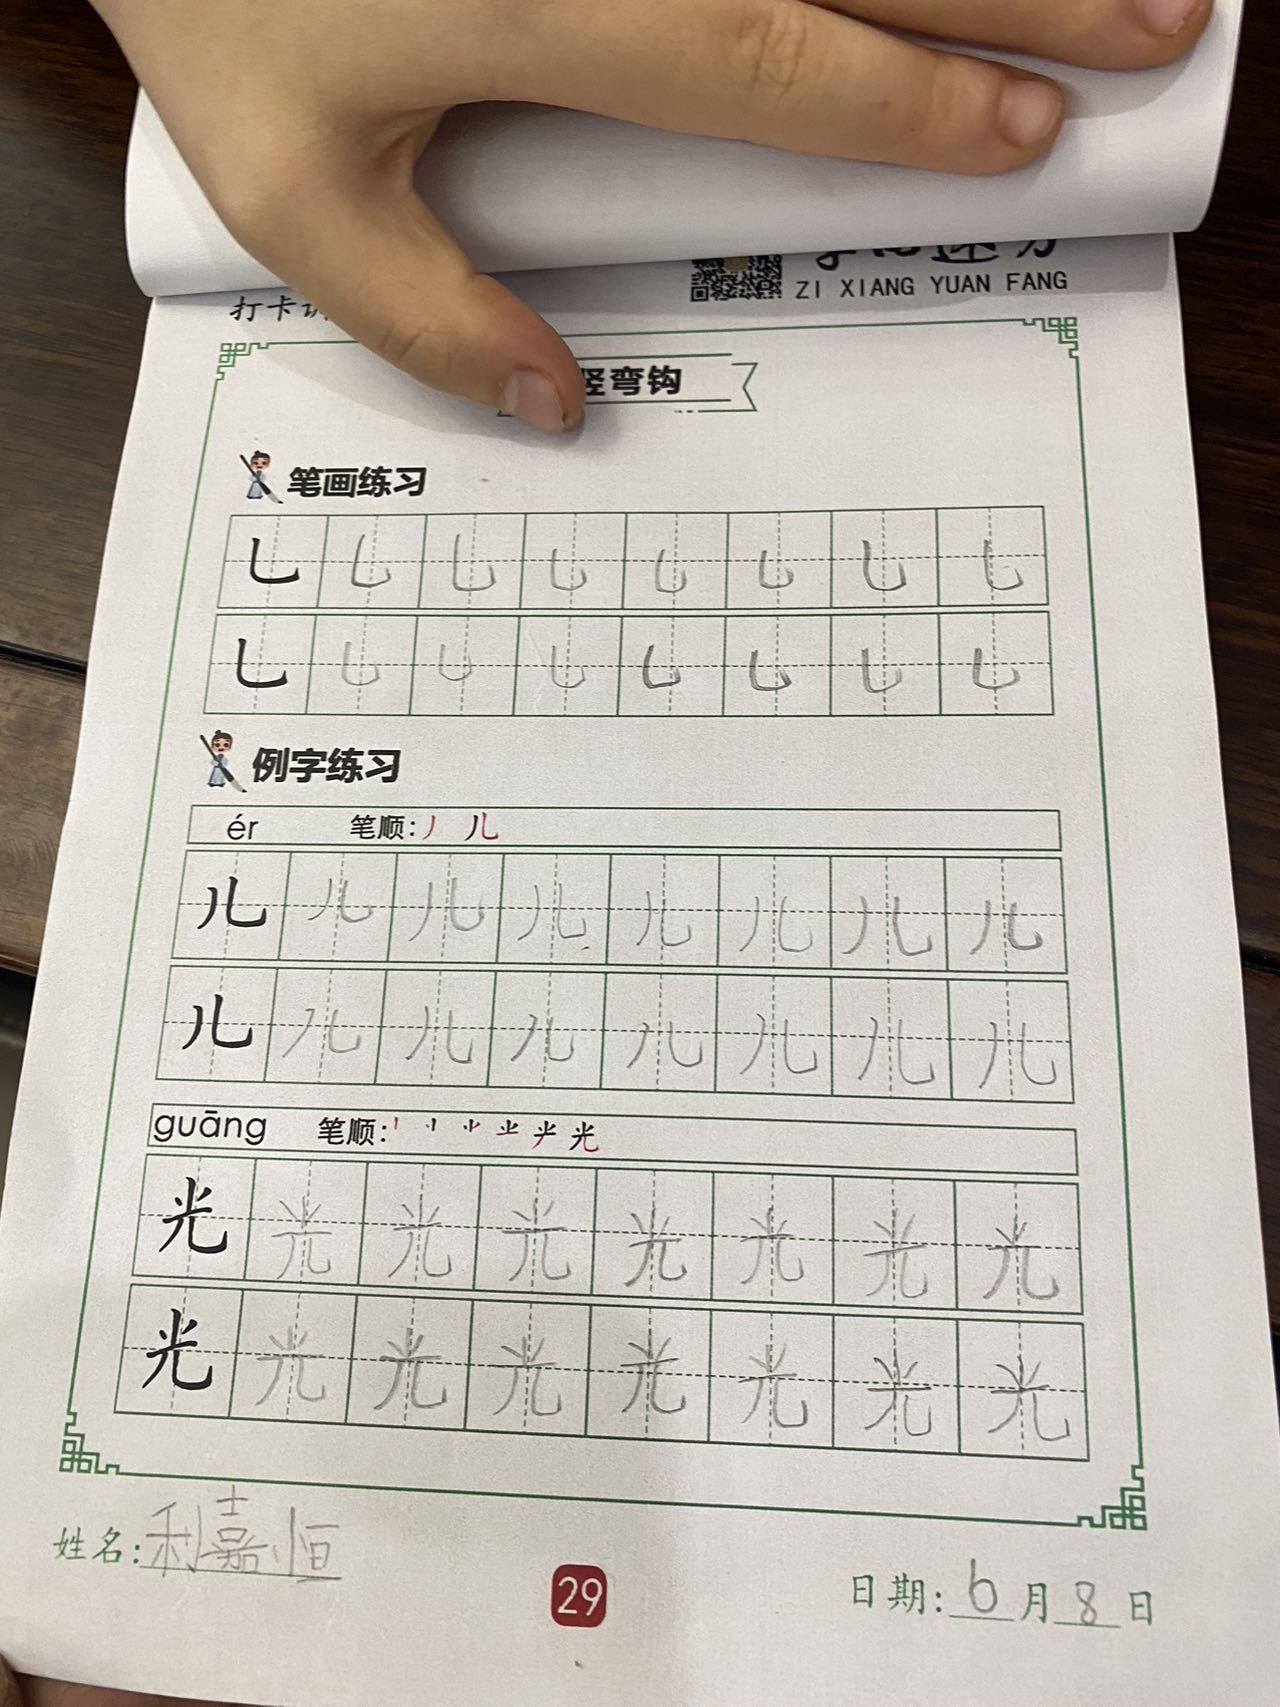 ZI XIANG YUAN FANG
打卡
竖弯钩
笔画练习
例字练习
ér 笔顺: 丿 儿
儿 儿 儿 儿 儿 儿 儿 儿
儿 儿 儿 儿 儿 儿 儿 儿
guāng 笔顺: 光
光 光 光 光 光 光 光 光
光 光 光 光 光 光 光 光
姓名: 利嘉恒
29
日期: 6月8日